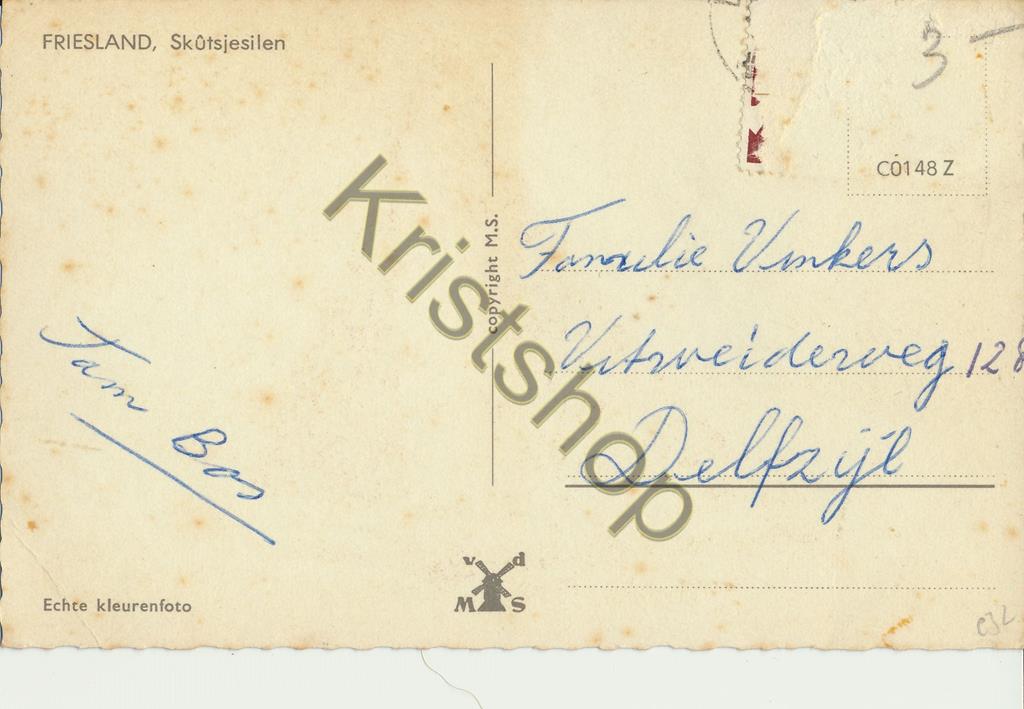 FRIESLAND, Skûtsjesilen
3 -
C0148 Z
copyright M.S.
Kristshop
Familie Vinkers
Uitweiderweg 128
Delfzijl
Tam Bos
v d
M S
Echte kleurenfoto